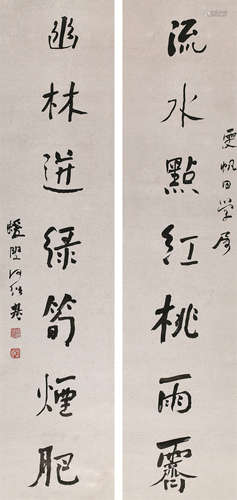 帆同学属
流水點紅桃雨霽
幽林迸绿筍煙肥
蝯叟何紹基